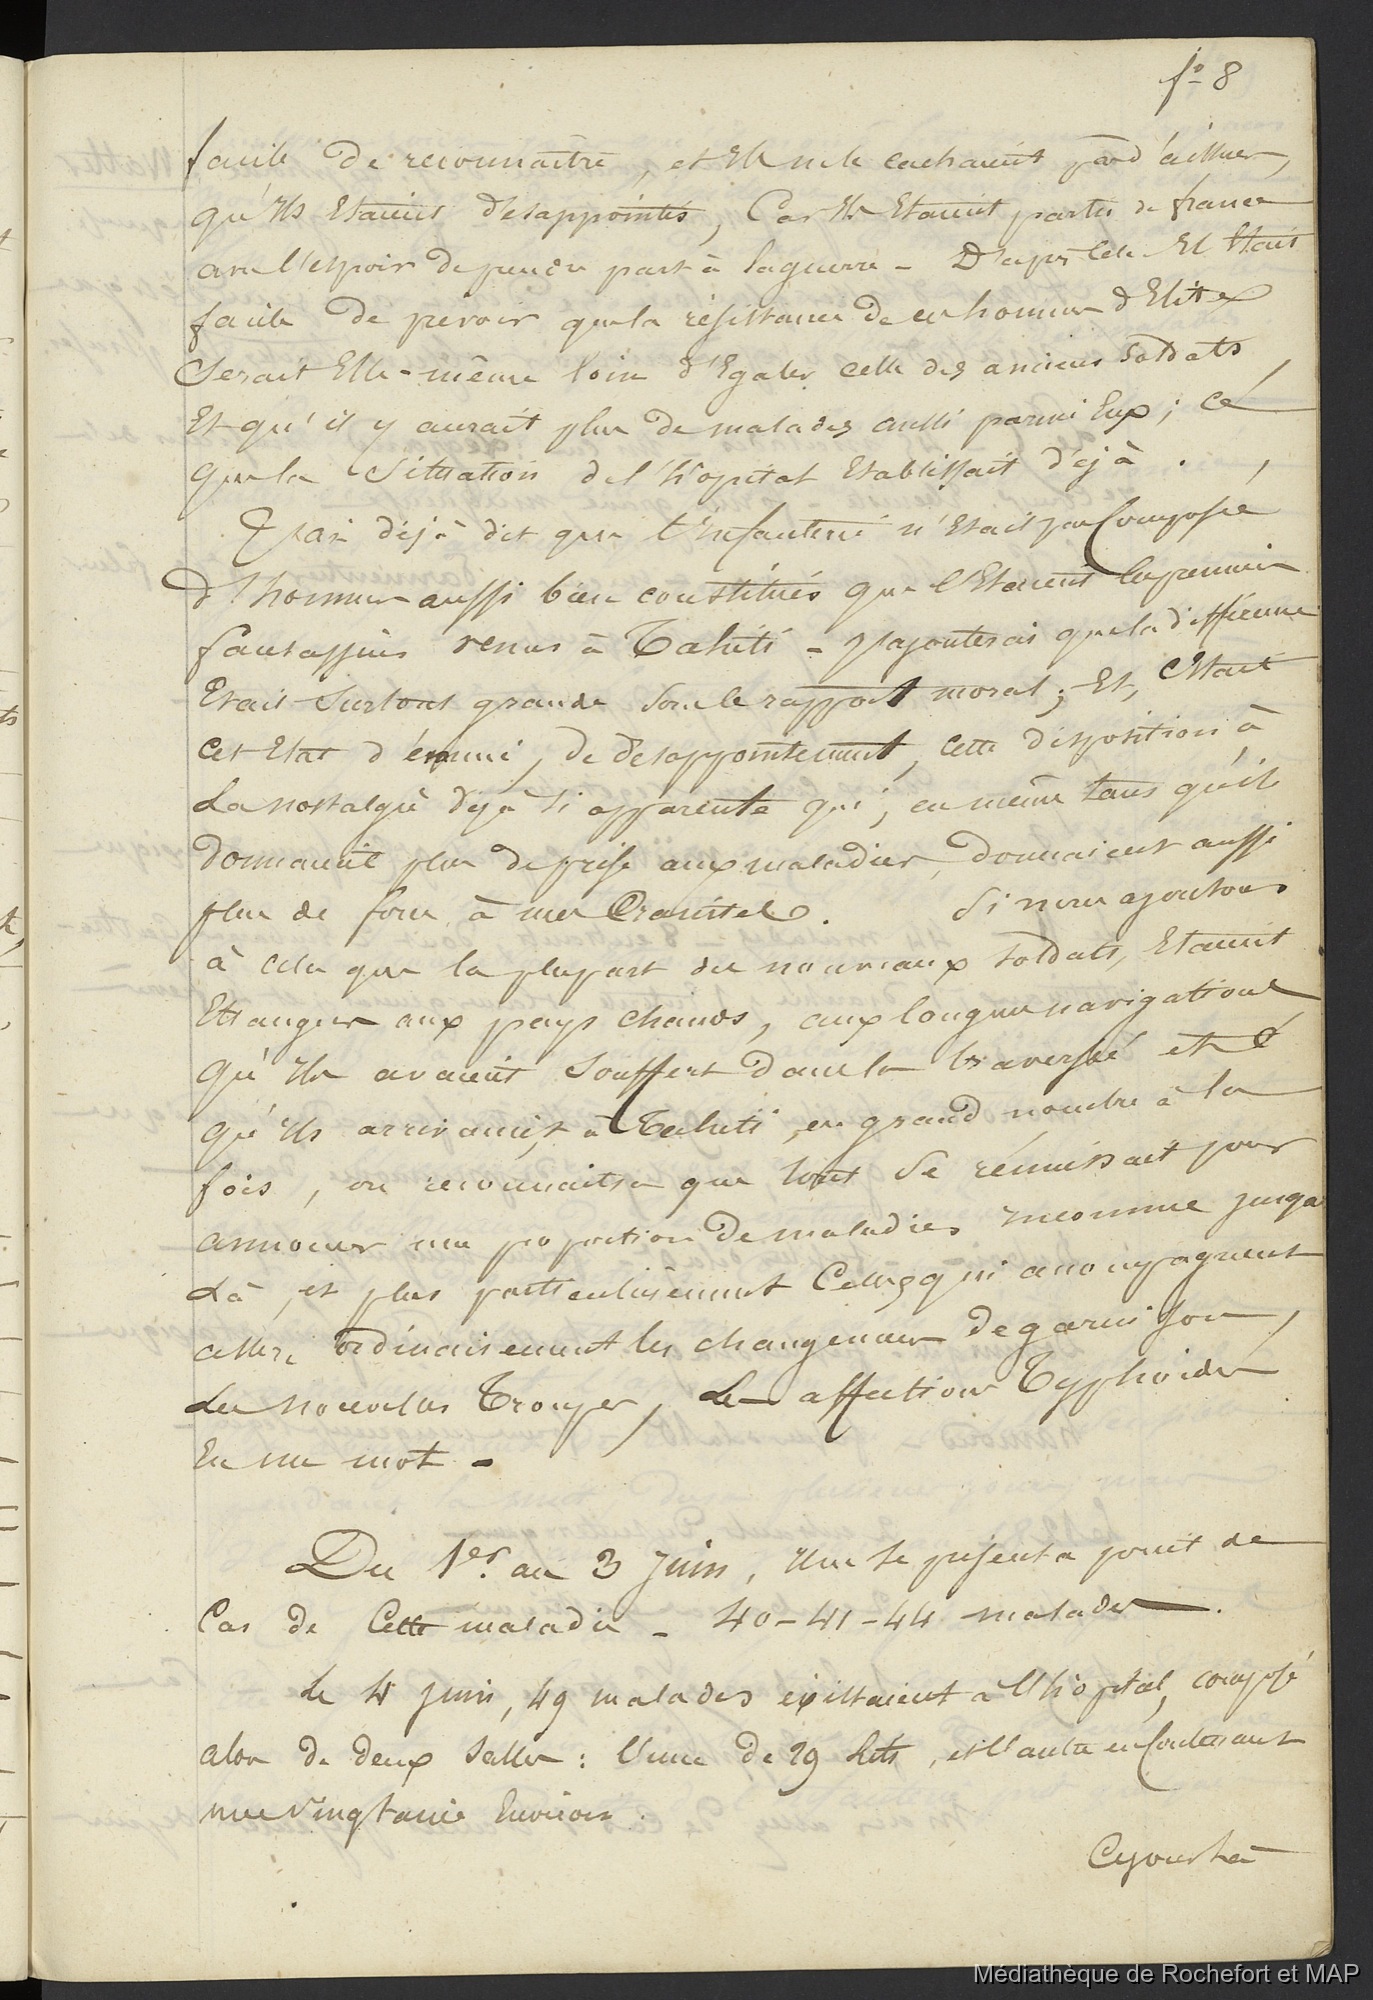 fo 8
facile de reconnaitre, et Ils ne le cachaient pas d'ailleurs,
qu'Ils Etaient désappointés, Car Ils Etaient partis de france
avec l'espoir de prendre part à la guerre - D'après Cela Il Etait
facile de prévoir que la résistance de ces hommes d'Elite
Serait Elle-même loin d'Egaler celle des anciens soldats,
Et qu'il y aurait plus de malades aussi parmi Eux; Ce
que la Situation de l'hôpital Etablissait déjà.
J'ai déjà dit que l'Infanterie n'Etait pas Composée
d'hommes aussi bien constitués que l'Etaient les premiers
fantassins venus à Tahiti - J'ajouterai que la différence
Etait Surtout grande sous le rapport moral; Et, C'Etait
cet Etat d'ennui, de désappointement, cette disposition à
La nostalgie déjà si apparente qui, en même tans qu'ils
donnaient plus de prise aux maladies, donnaient aussi
plus de force à mes Craintes. Si nous ajoutons
à cela que la plupart des nouveaux soldats, Etaient
Etrangers aux pays chauds, aux longues navigations
qu'Ils avaient Souffert dans la traversée et
qu'Ils arrivaient à Tahiti, en grand nombre à la
fois, on reconnaitra que tout Se réunissait pour
annoncer une proportion de maladies Inconnue jusqu'a
Là, et plus particulièrement Celles qui accompagnent
assez ordinairement les changemens de garnison,
Les nouvelles Troupes, Les affections Typhoïdes
En un mot -
Du 1er. au 3 Juin, Il ne Se présenta point de
Cas de Cette maladie - 40-41-44 malades.
Le 4 Juin, 49 malades existaient à l'hôpital, composé
alors de deux Salles: l'une de 29 lits, et l'autre en Contenant
une Vingtaine Environ.
Médiathèque de Rochefort et MAP